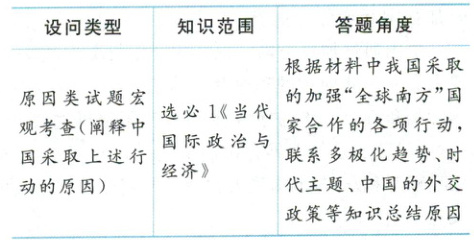 设问类型 知识范围 答题角度
原因类试题宏观考查(阐释中国采取上述行动的原因)
选必 1《当代国际政治与经济》
根据材料中我国采取的加强“全球南方”国家合作的各项行动,联系多极化趋势、时代主题、中国的外交政策等知识总结原因